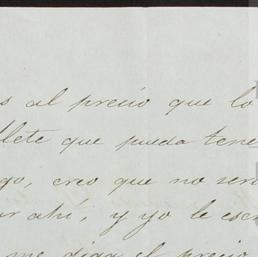 s al precio que lo
llete que pueda tene
go, creo que no será
ar ahí, y yo le escr
me diga el precio